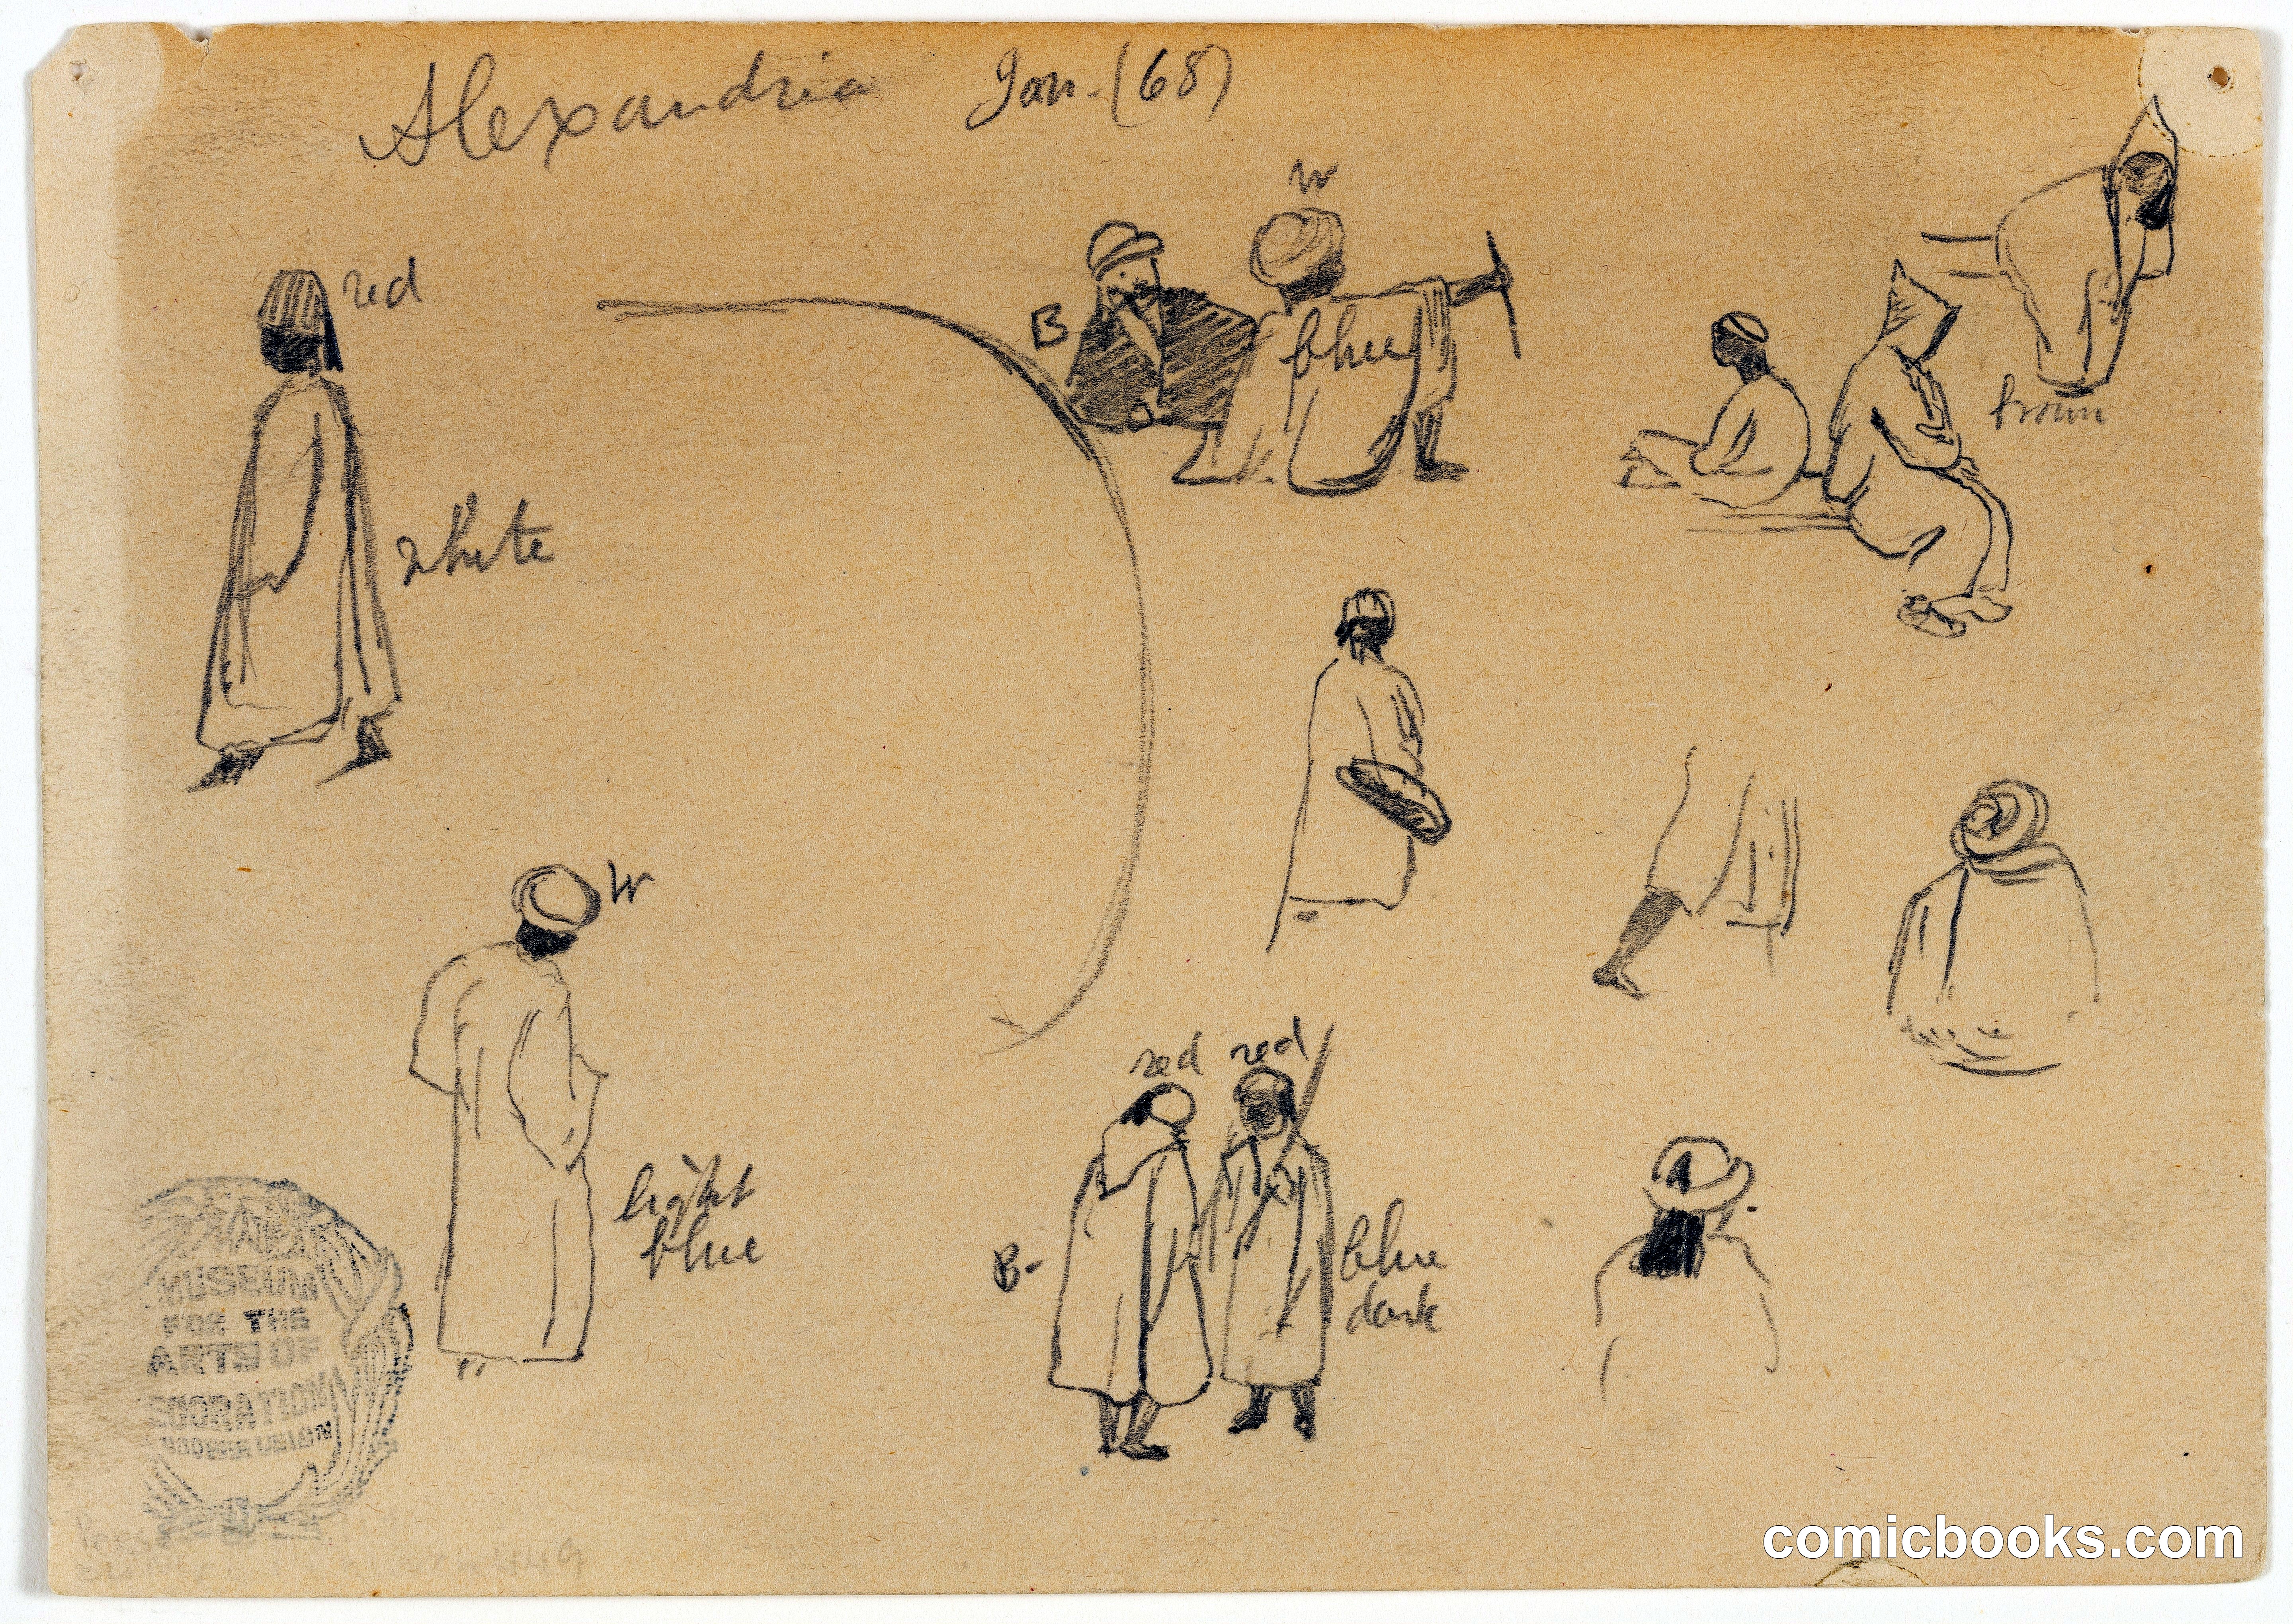 Alexandria Jan. (68)
W
red
B
blue
brown
white
W
red red
light
blue
B-
blue
dark
MUSEUM
FOR THE
ARTS OF
DECORATION
COOPER UNION
comicbooks.com